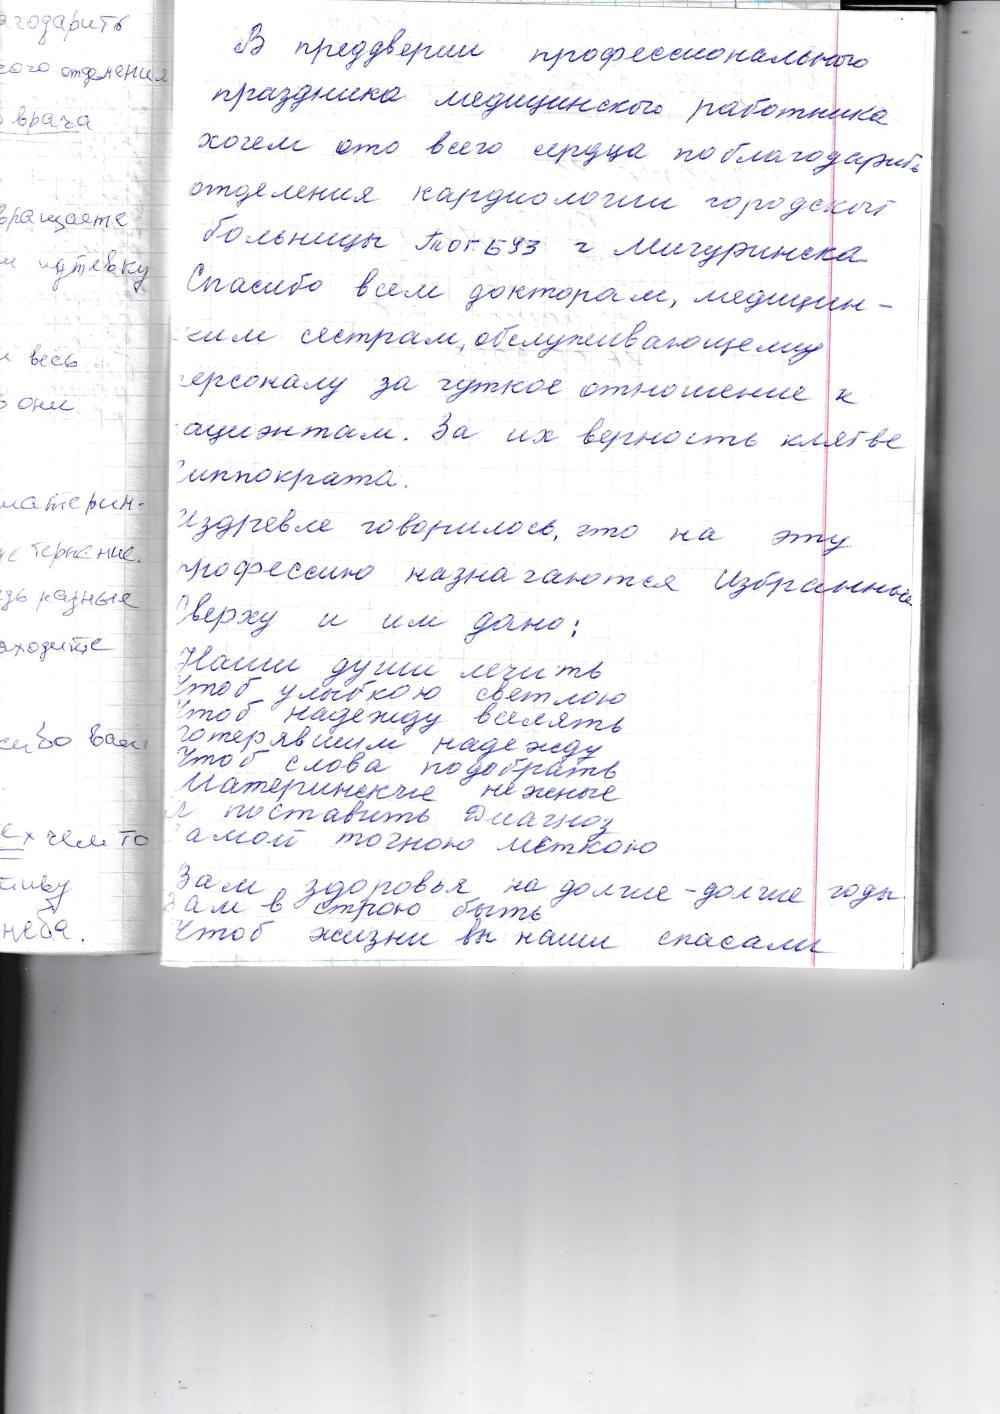 агодарить
ого отделения
врача
вращаете
и путевку
и весь
о они
материн-
не терпение.
дь разные
аходите
сибо Вам
ех чем то
тиву
неба.
В преддверии профессионального
праздника медицинского работника
хочем ото всего сердца поблагодарить
отделения кардиологии городской
больницы ТОГБУЗ г Мичуринска
Спасибо всем докторам, медицин-
ким сестрам, обслуживающему
ерсоналу за чуткое отношение к
ациэнтам. За их верность клятве
иппократа.
Издревле говорилось, что на эту
профессию назначаются Избранные
Сверху и им дано:
Наши души лечить
Чтоб улыбкою светлою
Чтоб надежду вселять
потерявшим надежду
Чтоб слова подобрать
Материнские нежные
И поставить Диагноз
Самой точною меткою
Вам здоровья на долгие-долгие годы.
Вам в строю быть
Чтоб жизни вы наши спасали